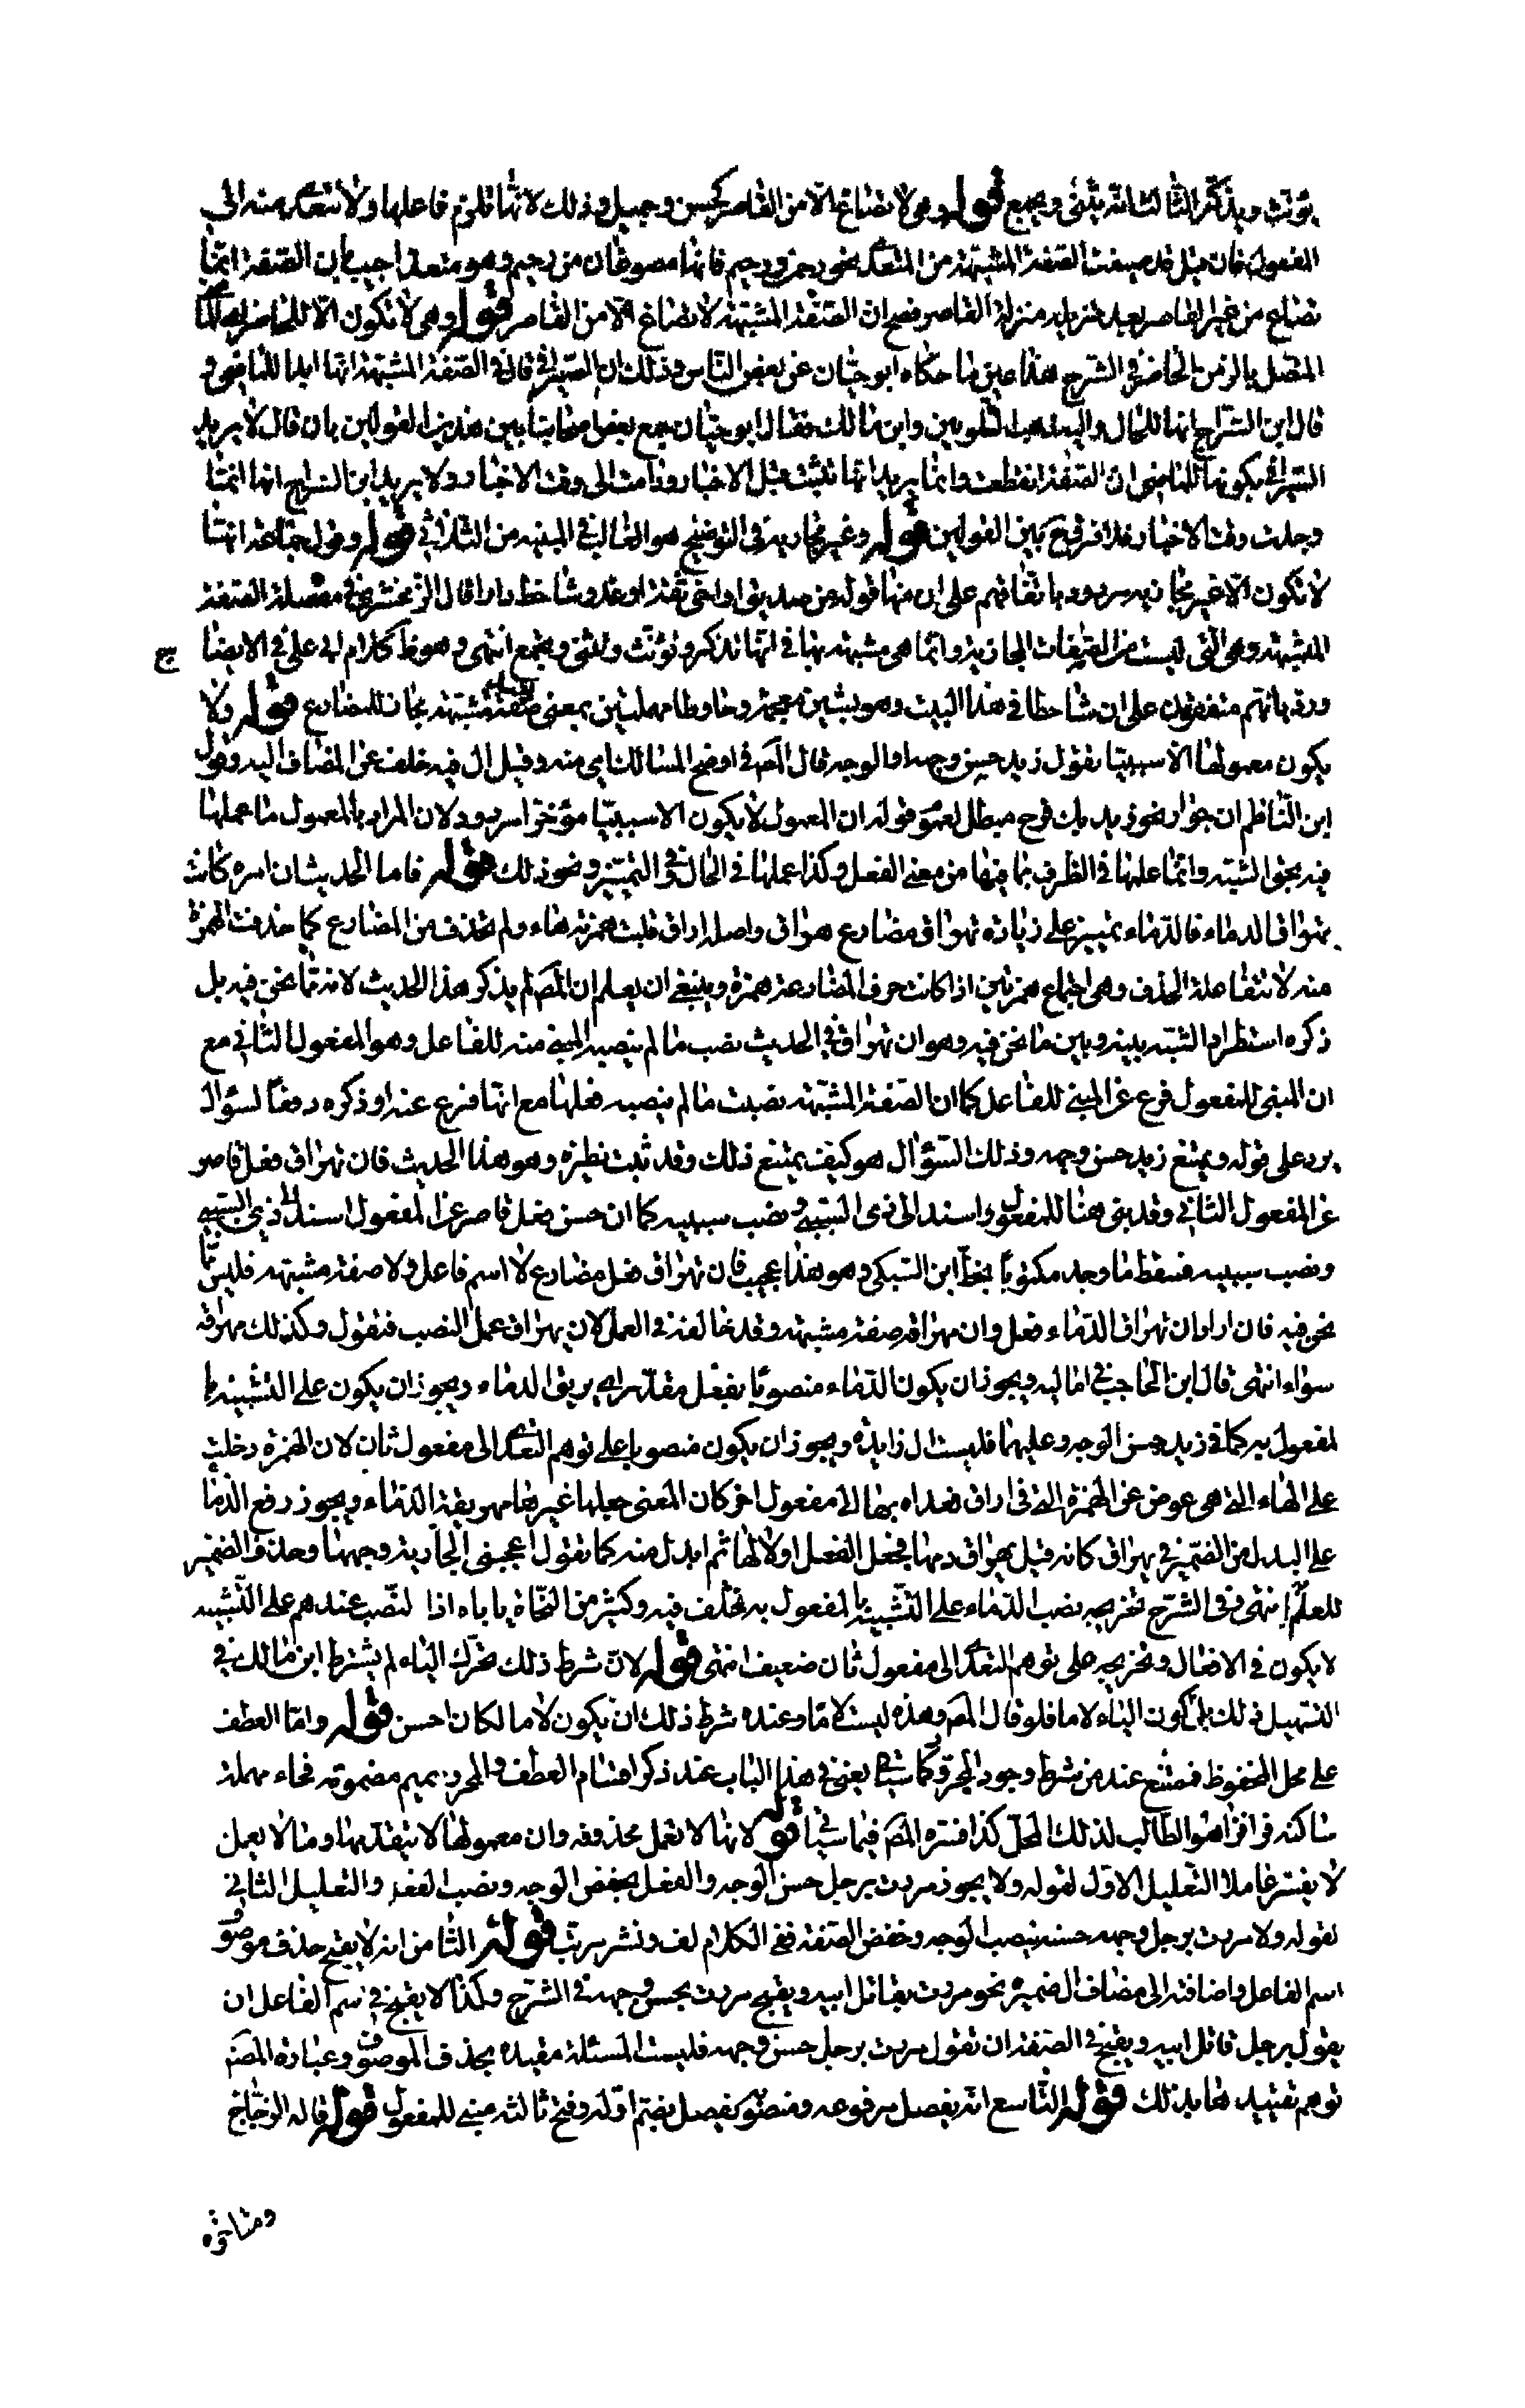 يؤنث ويذكر الثالث انه يثنى ويجمع قوله وهى لا تصاغ الا من القاصر كحسن وجميل وذلك لانها تلزم فاعلها ولا تتعدى منه الى
المفعول فان قيل قد صيغت الصفة المشبهة من المتعدى نحو رحمن ورحيم فانها مصوغان من رحم وهو متعد اجيب بان الصفة انما
تصاغ من غير القاصر بعد تنزيله منزلة القاصر فصح ان الصفة المشبهة لا تصاغ الا من القاصر قوله وهى لا تكون الا للحاضر اى
المتصل بالزمن الحاضر فى الشرح هذا عين ما حكاه ابو حيان عن بعض الناس وذلك ان السيرافى قال فى الصفة المشبهة انها ابدا للماضى و
قال ابن السراج انها للحال واليه ذهب الشلوبين وابن مالك فقال ابو حيان جمع بعض اصحابنا بين هذين القولين بان قال لا يريد
السيرافى بكونها للماضى ان الصفة انقطعت وانما يريد انها ثبتت قبل الاخبار ودامت الى وقت الاخبار ولا يريد ابن السراج انها انما
وجدت وقت الاخبار فلا فرق بين القولين قوله وغير مجارية فى التوضيح هو الغالب فى المبنية من الثلاثى قوله وقول جماعة انها
لا تكون الا غير مجارية مردود باتفاقهم على ان منها قوله من صديق او اخى ثقة او عدو شاحط دارا قال الزمخشرى فى مفصله الصفة
المشبهة وهى التى ليست من الصفات الجارية وانما هى مشبهة بها فى انها تذكر وتؤنث وتثنى وتجمع انتهى وهو ظ كلام ابى على فى الايضاح
ورد بانهم متفقون على ان شاحطا فى هذا البيت وهو بشين معجمة وحا وطا مهملتين بمعنى بعيد صفة مشبهة مجار للمضارع قوله ولا
يكون معمولها الا سببيا تقول زيد حسن وجهه او الوجه قال المص فى اوضح المسالك اى منه وقيل ال فيه خلف عن المضاف اليه وقول
ابن الناظم ان جواز نحو زيد بك فرح مبطل لعموم قوله ان المعمول لا يكون الا سببيا مؤخرا مردود لان المراد بالمعمول ما عملها
فيه بحق الشبه وانما عملها فى الظرف بما فيها من معنى الفعل وكذا عملها فى الحال وفى التمييز ونحو ذلك قوله فاما الحديث ان امرءة كانت
تهراق الدماء فالدماء تمييز على زيادة تهراق مضارع هراق واصله اراق قلبت همزته هاء ولم تحذف من المضارع كما حذفت الهمزة
منه لانتفاء علة الحذف وهى اجتماع همزتين اذا كانت حرف المضارعة همزة وينبغى ان يعلم ان المص لم يذكر هذا الحديث لانه مما نحن فيه بل
ذكره استطرادا لشبه بينه وبين ما نحن فيه وهو ان تهراق فى الحديث نصب ما لم ينصبه المبنى منه للفاعل وهو المفعول الثانى مع
ان المبنى للمفعول فرع عن المبنى للفاعل كما ان الصفة المشبهة نصبت ما لم ينصبه فعلها مع انها فرع عنه او ذكره دفعا لسؤال
يرد على قوله ويمتنع زيد حسن وجهه وذلك السؤال هو كيف يمتنع ذلك وقد ثبت نظيره وهو هذا الحديث فان تهراق فعل قاصر
عن المفعول الثانى وقد بنى هنا للمفعول واسند الى ذى السببى ونصب سببيه كما ان حسن فعل قاصر عن المفعول اسند الى ذى السببى
ونصب سببيه فسقط ما وجد مكتوبا بخط ابن السبكى وهو هذا عجيب فان تهراق فعل مضارع لا اسم فاعل ولا صفة مشبهة فليس مما
نحن فيه فان اراد ان تهراق الدماء فعل وان مهراقه صفة مشبهة وقد خالفته فى العمل لان يهراق عمل النصب فنقول وكذلك مهراقة
سواء انتهى قال ابن الحاجب فى اماليه ويجوز ان يكون الدماء منصوبا بفعل مقدر اى يريق الدماء ويجوز ان يكون على التشبيه با
لمفعول به كما فى زيد حسن الوجه وعليهما فليست ال زايدة ويجوز ان يكون منصوبا على توهم التعدى الى مفعول ثان لان الهمزة دخلت
على الهاء التى هى عوض عن الهمزة التى فى اراق فعداه بها الى مفعول اخر كان المعنى جعلها غيرها مهريقة الدماء ويجوز رفع الدماء
على البدل من الضمير فى يهراق كانه قيل يهراق دمها فجعل الفعل اولا لها ثم ابدل منه كما تقول اعجبنى الجارية وجهها وحذف الضمير
للعلم انتهى وفى الشرح تخريجه نصب الدماء على التشبيه بالمفعول به مختلف فيه وكثير من النحاة ياباه اذا النصب عندهم على التشبيه
لا يكون فى الافعال وتخريجه على توهم التعدى الى مفعول ثان ضعيف انتهى قوله لان شرط ذلك تحرك الياء لم يشترط ابن مالك فى
التسهيل ذلك بل كون الياء لاما فلو قال المص وهذه ليست لاما وعنده شرط ذلك ان يكون لاما لكان احسن قوله واما العطف
على محل المخفوظ فممتنع عند من شرط وجود المحرز كما سياتى يعنى فى هذا الباب عند ذكر اقسام العطف والمحرز بميم مضمومة فحاء مهملة
ساكنة فرا فزا هو الطالب لذلك المحل كذا فسره المص فيما سياتى قوله لانها لا تعمل محذوفة وان معمولها لا يتقدمها وما لا يعمل
لا يفسر عاملا التعليل الاول لقوله ولا يجوز مررت برجل حسن الوجه والفعل بخفض الوجه ونصب الفعل والتعليل الثانى
لقوله ولا مررت برجل وجهه حسنه بنصب الوجه وخفض الصفة ففى الكلام لف ونشر مرتب قوله الثامن انه لا يقبح حذف موصوف
اسم الفاعل واضافته الى مضاف الى ضميره نحو مررت بقاتل ابيه ويقبح مررت بحسن وجهه فى الشرح وكذا لا يقبح فى اسم الفاعل ان
يقول برجل قاتل ابيه ويقبح فى الصفة ان تقول مررت برجل حسن وجهه فليست المسئلة مقيدة بحذف الموصوف وعبارة المص
توهم تقييدها بذلك قوله التاسع انه يفصل مرفوعه ومنصوبه كيفصل بضم اوله وفتح ثالثه مبنى للمفعول قوله قاله الزجاج
ومتاخروه